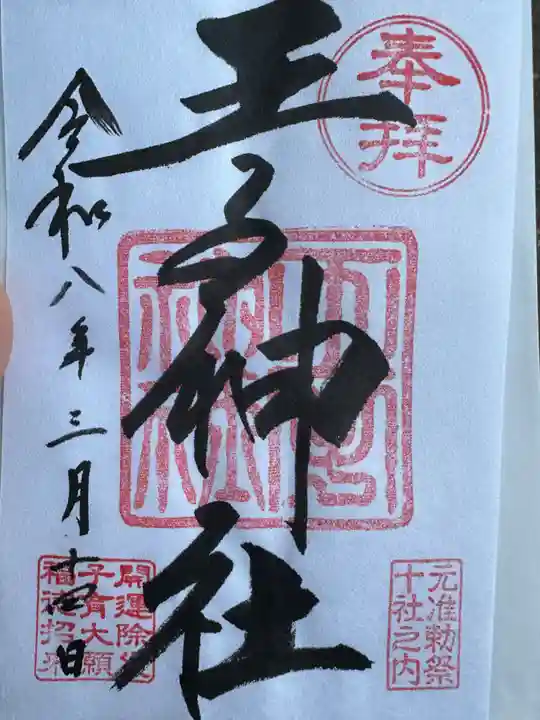 奉拝
王子神社
令和八年三月十四日
元准勅祭
十社之内
開運除災
子育大願
福徳招来